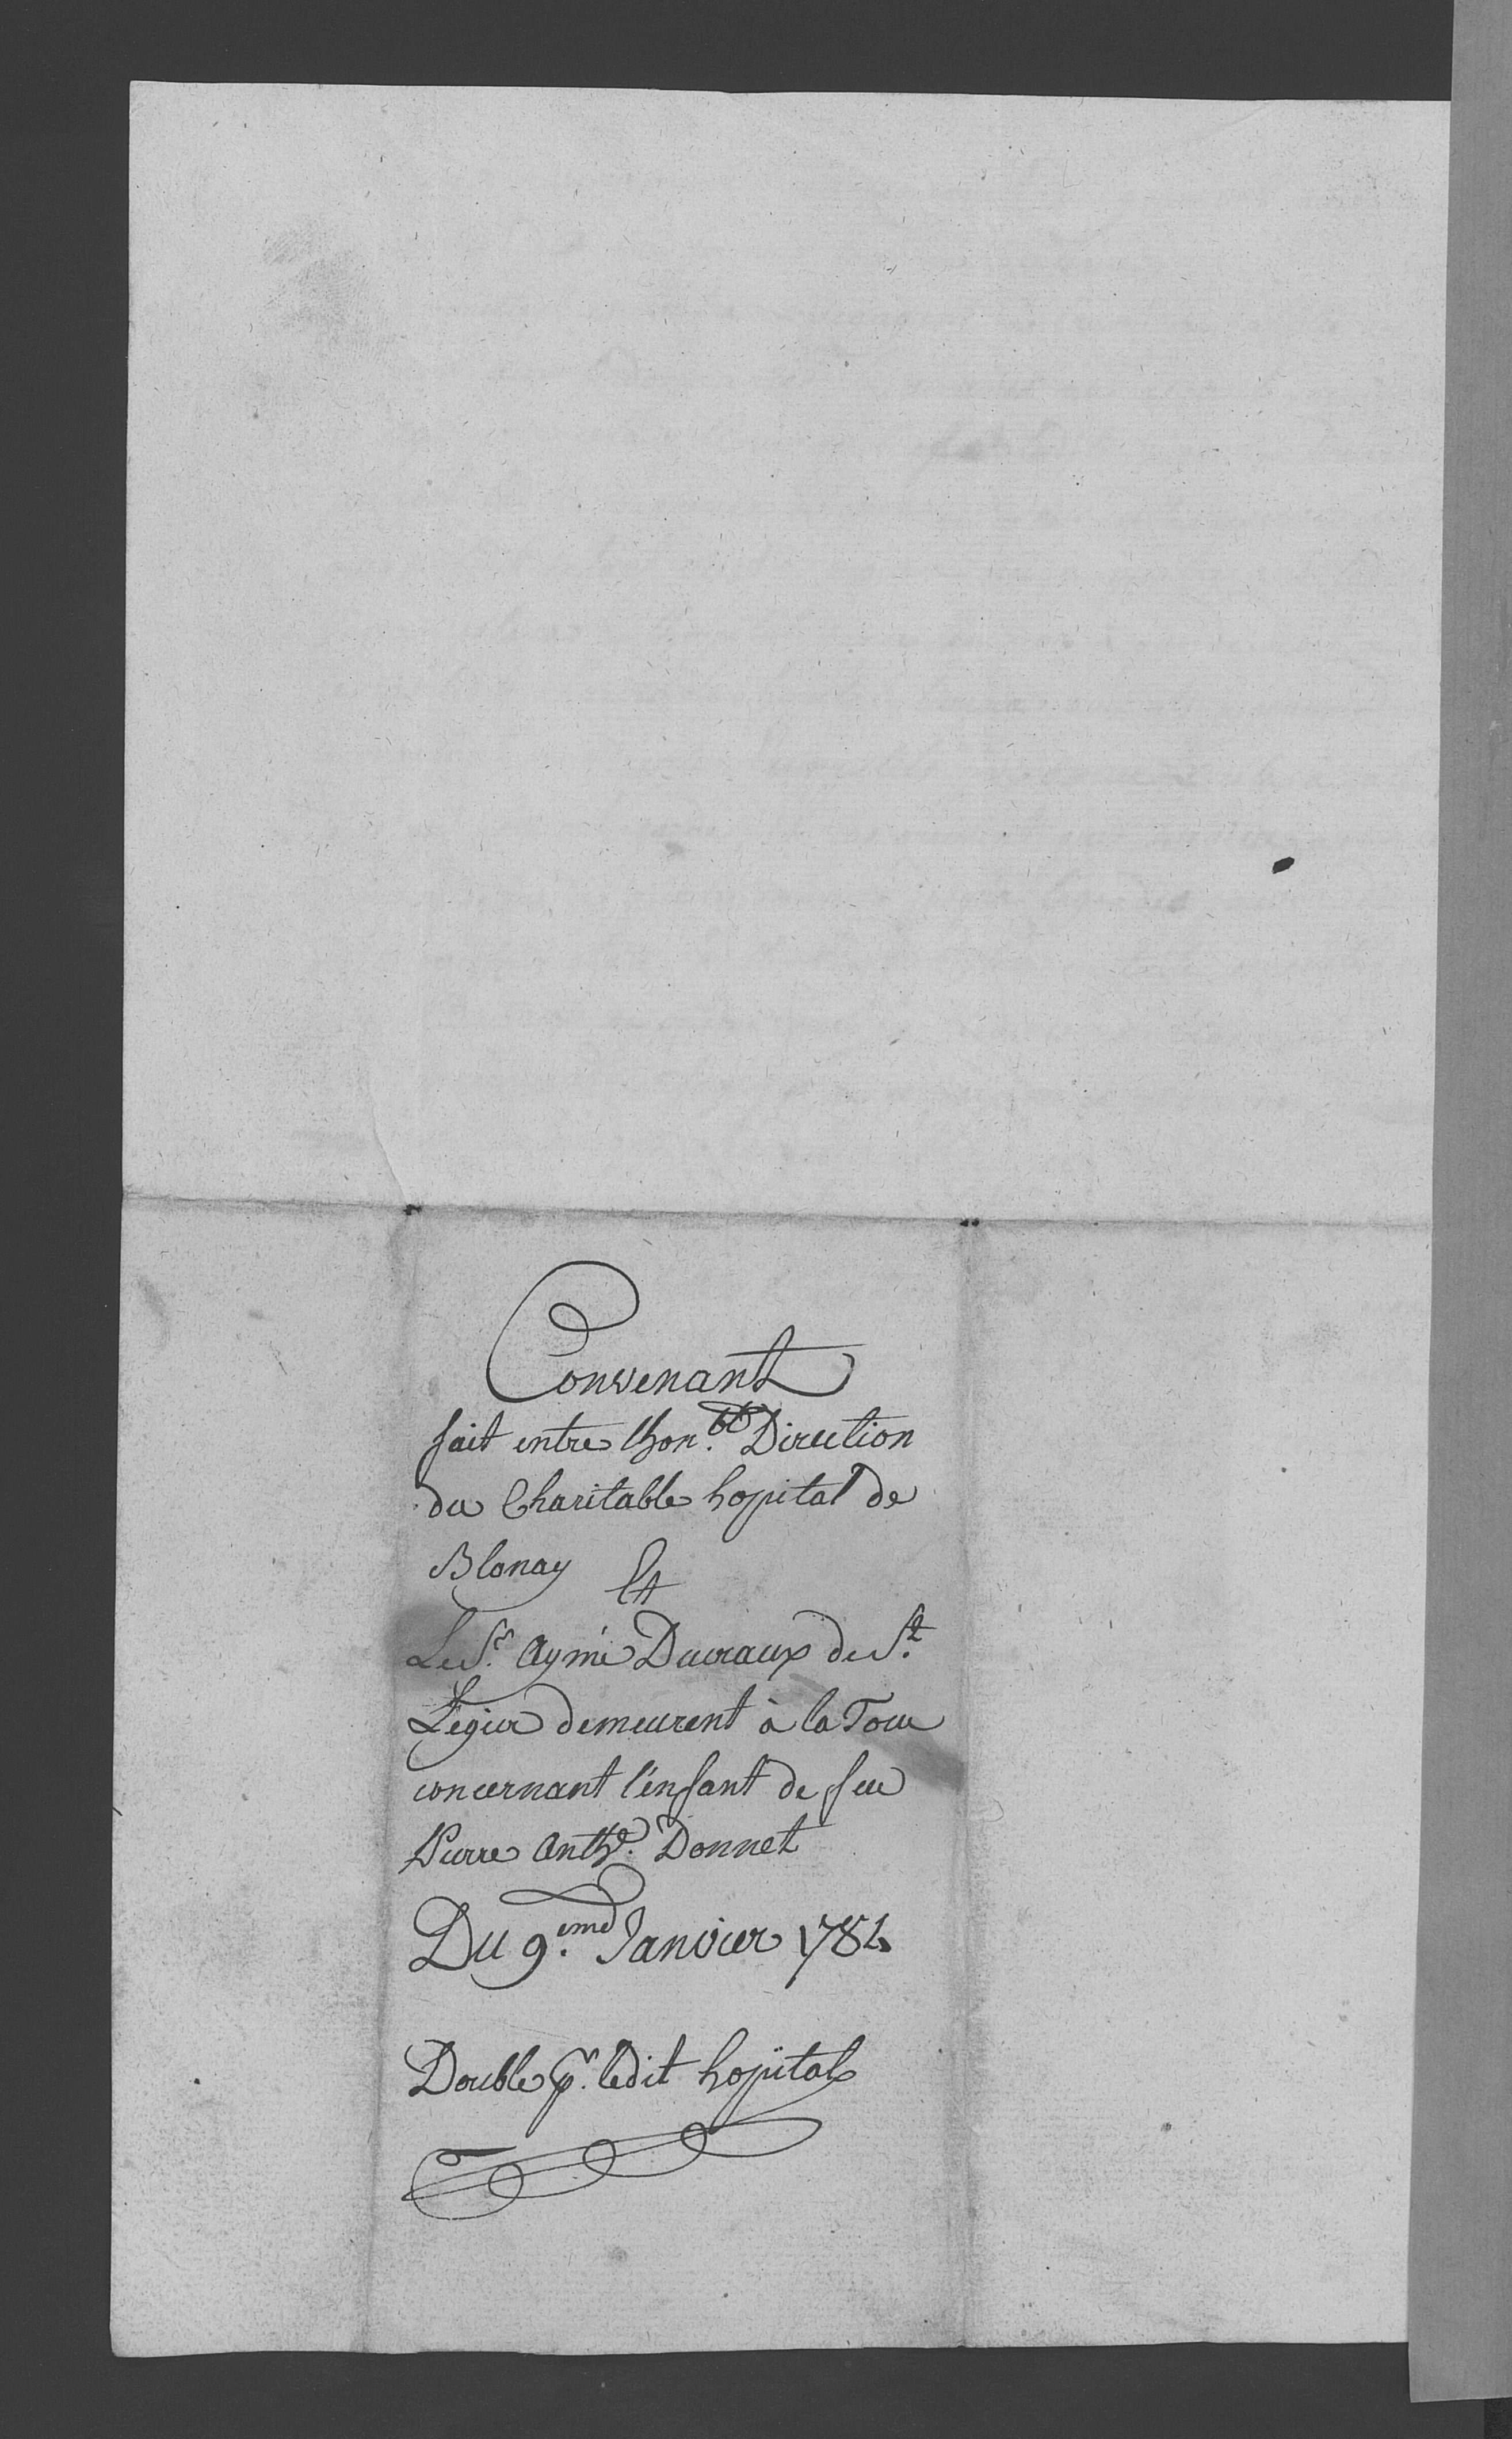 Convenant
fait entre lhon.ble Direction
du Charitable hopital de
Blonay Et
Le Sr. Aymé Ducraux de St.
Légier demeurent à la Tour
concernant l'enfant de feu
Pierre Anthe. Donnet
Du 9.eme Janvier 1782
Double pr. ledit hopital